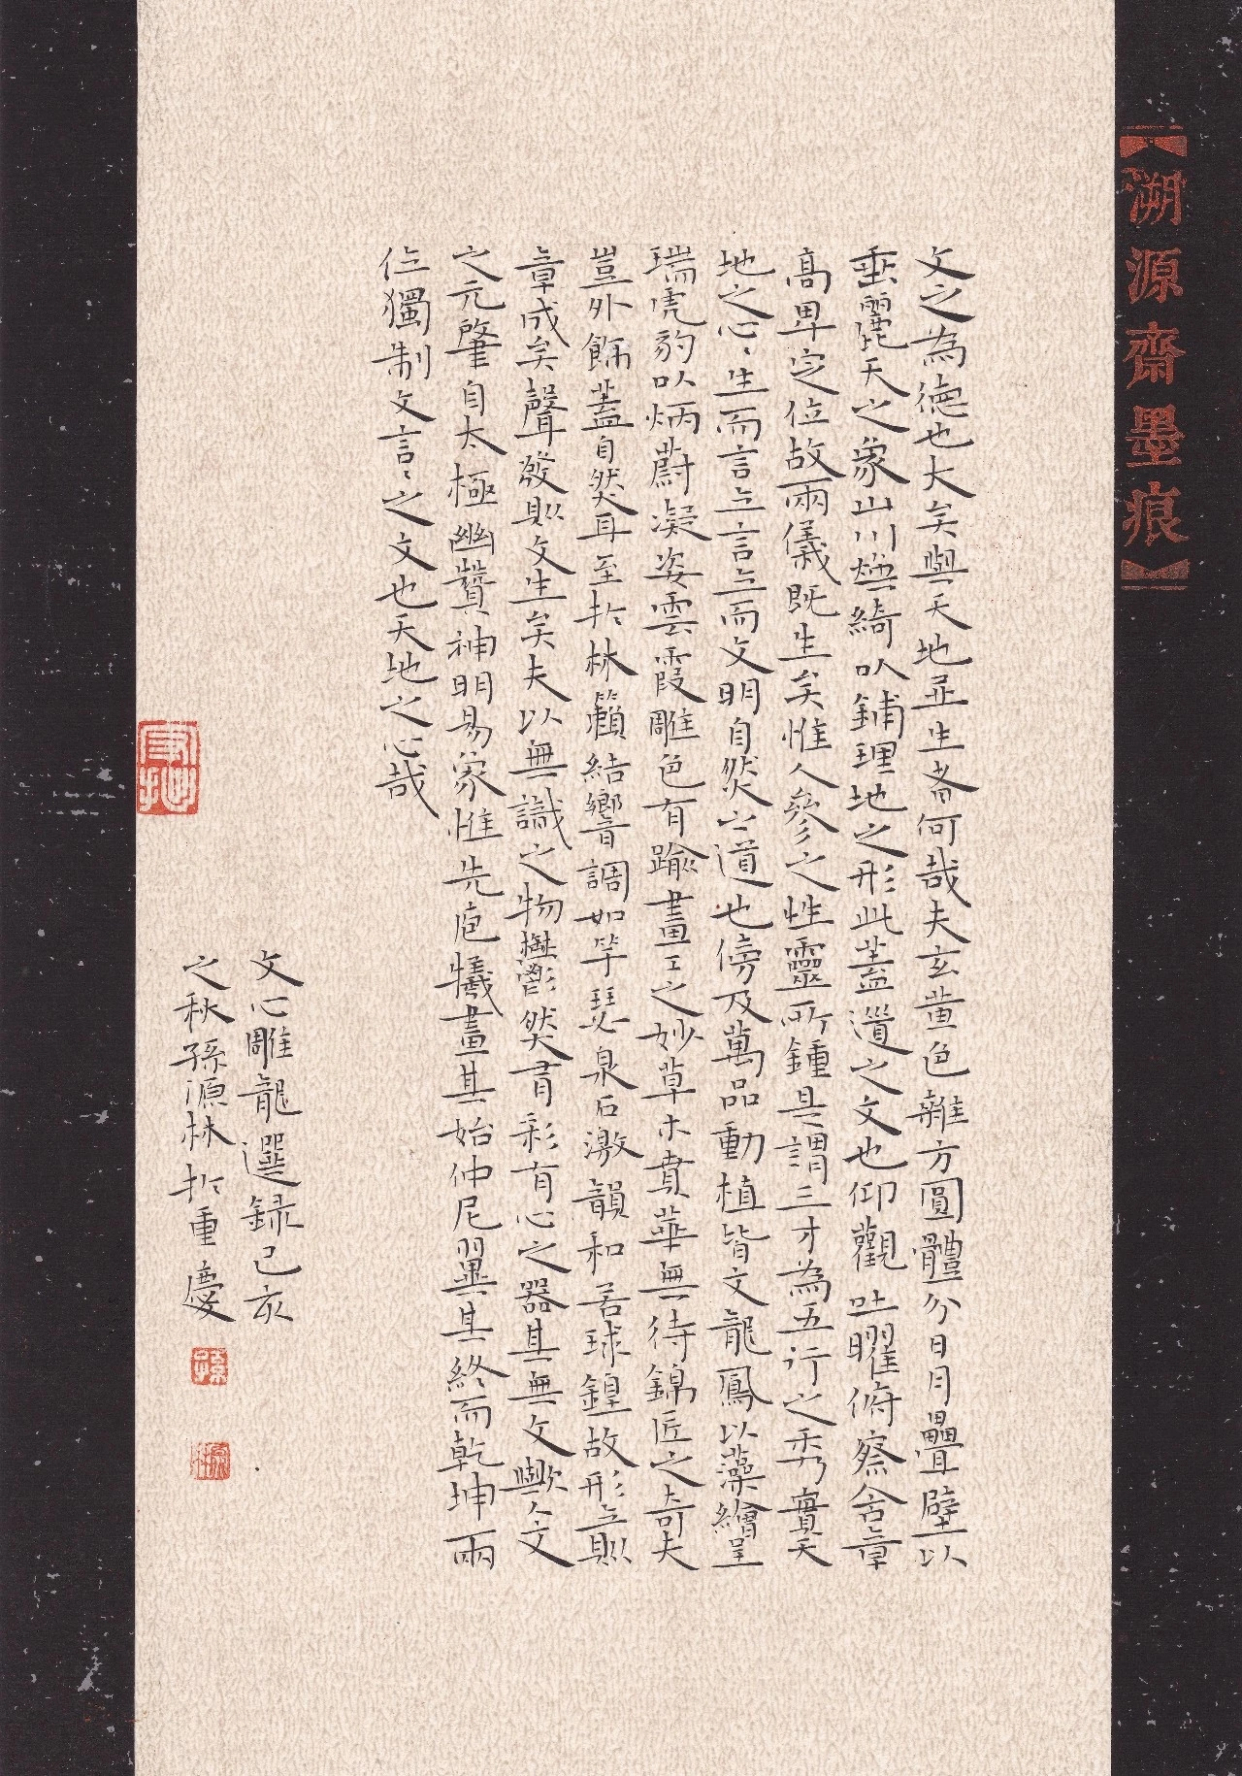 溯源齋墨痕
文之為德也大矣與天地並生者何哉夫玄黃色雜方圓體分日月疊壁以
垂麗天之象山川煥綺以鋪理地之形此蓋道之文也仰觀吐曜俯察含章
高卑定位故兩儀既生矣惟人參之性靈所鍾是謂三才為五行之秀實天
地之心、生而言立言立而文明自然之道也傍及萬品動植皆文龍鳳以藻繪呈
瑞虎豹以炳蔚凝姿雲霞雕色有踰畫工之妙草木賁華無待錦匠之奇夫
豈外飾蓋自然耳至於林籟結響調如竽瑟泉石激韻和若球鍠故形立則
章成矣聲發則文生矣夫以無識之物鬱然有彩有心之器其無文歟人文
之元肇自太極幽贊神明易象惟先庖犧畫其始仲尼翼其終而乾坤兩
位獨制文言、之文也天地之心哉
文心雕龍選錄己亥
之秋孫源林於重慶
孫